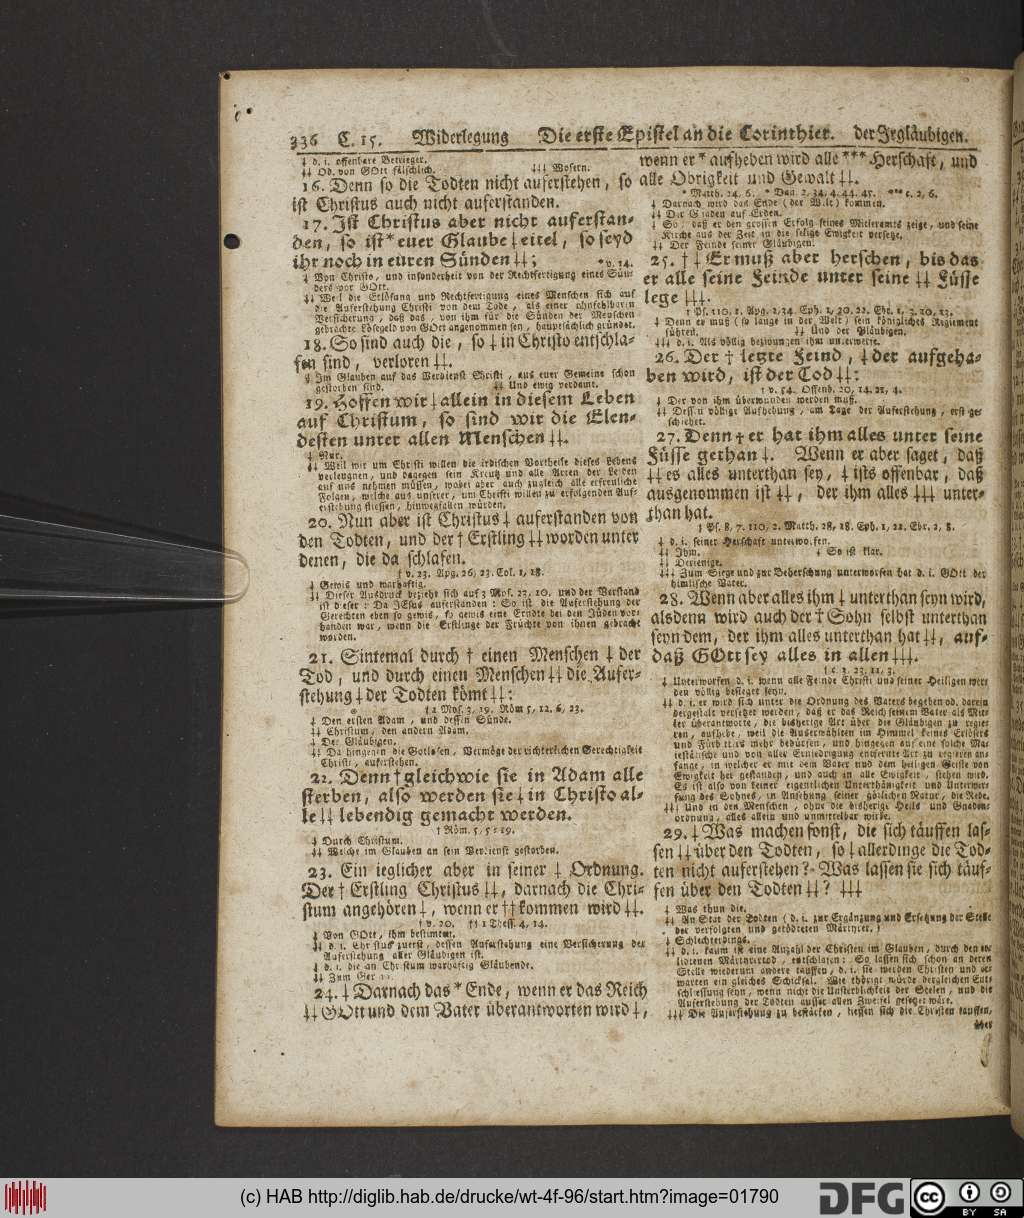 336 C. 15. Widerlegung Die erste Epistel an die Corinthier. der Irgläubigen.
‡ d. i. offenbare Betrieger.
‡‡ Ob. von GOtt fälschlich. ‡‡‡ Wofern.
16. Denn so die Todten nicht auferstehen, so
ist Christus auch nicht auferstanden.
17. Ist Christus aber nicht auferstan-
den, so ist* euer Glaube ‡ eitel, so seyd
ihr noch in euren Sünden ‡‡; *v. 14.
‡ Von Christo, und insonderheit von der Rechtfertigung eines Sün-
ders vor GOtt.
‡‡ Weil die Erlösung und Rechtfertigung eines Menschen sich auf
die Auferstehung Christi von dem Tode, als einer ohnfehlbaren
Versicherung, daß das, von ihm für die Sünden der Menschen
gebrachte Lösegeld von GOtt angenommen sey, hauptsächlich gründet.
18. So sind auch die, so ‡ in Christo entschla-
fen sind, verloren ‡‡.
‡ Im Glauben auf das Verdienst Christi, aus euer Gemeine schon
gestorben sind. ‡‡ Und ewig verdamt.
19. Hoffen wir ‡ allein in diesem Leben
auf Christum, so sind wir die Elen-
desten unter allen Menschen ‡‡.
‡ Nur.
‡‡ Weil wir um Christi willen die irdischen Vortheile dieses Lebens
verleugnen, und dagegen sein Kreutz und alle Arten der Leiden
auf uns nehmen müssen, wobei aber auch zugleich alle erfreuliche
Folgen, welche aus unserer, um Christi willen zu erfolgenden Auf-
erstehung fliessen, hinwegfallen würden.
20. Nun aber ist Christus ‡ auferstanden von
den Todten, und der † Erstling ‡‡ worden unter
denen, die da schlafen.
† v. 23. Apg. 26, 23. Col. 1, 18.
‡ Gewis und warhaftig.
‡‡ Dieser Ausdruck bezieht sich auf 3 Mos. 23, 10. und der Verstand
ist dieser: Da JEsus auferstanden: So ist die Auferstehung der
Gerechten eben so gewis, so gewis eine Erndte bei den Jüden vor-
handen war, wenn die Erstlinge der Früchte von ihnen gebracht
worden.
21. Sintemal durch † einen Menschen ‡ der
Tod, und durch einen Menschen ‡‡ die Aufer-
stehung ‡ der Todten kömt ‡‡:
†1 Mos. 3, 19. Röm 5, 12. 6, 23.
‡ Den ersten Adam, und dessen Sünde.
‡‡ Christum, den andern Adam.
‡ Der Gläubigen.
‡‡ Da hingegen die Gotlosen, Vermöge der richterlichen Gerechtigkeit
Christi, auferstehen.
22. Denn † gleichwie sie in Adam alle
sterben, also werden sie ‡ in Christo al-
le ‡‡ lebendig gemacht werden.
† Röm. 5, 5:19.
‡ Durch Christum.
‡‡ Welche im Glauben an sein Verdienst gestorben.
23. Ein ieglicher aber in seiner ‡ Ordnung.
Der † Erstling Christus ‡‡, darnach die Chri-
stum angehören ‡, wenn er †† kommen wird ‡‡.
† v. 20. †† 1 Thess. 4, 14.
‡ Von GOtt, ihm bestimter.
‡‡ d. i. Christus zuerst, dessen Auferstehung eine Versicherung der
Auferstehung aller Gläubigen ist.
‡ d. i. die an Christum warhaftig Gläubende.
‡‡ Zum
24. ‡ Darnach das * Ende, wenn er das Reich
‡‡ GOtt und dem Vater überantworten wird ‡,
wenn er * aufheben wird alle *** Herschaft, und
alle Obrigkeit und Gewalt ‡‡.
* Matth. 24, 6. * Dan. 2, 34. 4. 44. 45. *** c. 2, 6.
‡ Darnach wird das Ende (der Welt) kommen.
‡‡ Der Gnaden auf Erden.
‡ So: daß er den grossen Erfolg seines Mitleramts zeige, und seine
Kirche aus der Zeit in die selige Ewigkeit versetze.
‡‡ Der Feinde seiner Gläubigen.
25. † ‡ Er muß aber herschen, bis das
er alle seine Feinde unter seine ‡‡ Füsse
lege ‡‡‡.
† Ps. 110, 1. Apg. 2, 34. Eph. 1, 20. 22. Ebr. 1, 3. 10, 13.
‡ Denn er muß (so lange in der Welt) sein königliches Regiment
führen. ‡‡ Und der Gläubigen.
‡‡‡ d. i. Als völlig bezwungen ihm unterwerfe.
26. Der † letzte Feind, ‡ der aufgeha-
ben wird, ist der Tod ‡‡:
† v. 54. Offenb. 20, 14. 21, 4.
‡ Der von ihm überwunden werden muß.
‡‡ Dessen völlige Aufhebung, am Tage der Auferstehung, erst ge-
schiehet.
27. Denn † er hat ihm alles unter seine
Füsse gethan ‡. Wenn er aber saget, daß
‡‡ es alles unterthan sey, ‡ ists offenbar, daß
ausgenommen ist ‡‡, der ihm alles ‡‡‡ unter-
than hat.
† Ps. 8, 7. 110, 2. Matth. 28, 18. Eph. 1, 22. Ebr. 2, 8.
‡ d. i. seiner Herschaft unterworfen.
‡‡ Ihm. ‡ So ist klar.
‡‡ Derienige.
‡‡‡ Zum Siege und zur Beherschung unterworfen hat d. i. GOtt der
himlische Vater.
28. Wenn aber alles ihm ‡ unterthan seyn wird,
alsdenn wird auch der † Sohn selbst unterthan
seyn dem, der ihm alles unterthan hat ‡‡, auf-
daß GOtt sey alles in allen ‡‡‡.
† c. 3, 23. 11, 3.
‡ Unterworfen d. i. wenn alle Feinde Christi und seiner Heiligen wer-
den völlig besieget seyn.
‡‡ d. i. er wird sich unter die Ordnung des Vaters begeben od. darein
dergestalt versetzet werden, daß er das Reich seinem Vater als Mit-
ler überantworte, die bisherige Art über die Gläubigen zu regier-
ren, aufhebe, weil die Auserwählten im Himmel keines Erlösers
und Fürbitters mehr bedürfen, und hingegen auf eine solche Ma-
iestätische und von aller Erniedrigung entfernte Art zu regieren an-
fange, in welcher er mit dem Vater und dem heiligen Geiste von
Ewigkeit her gestanden, und auch in alle Ewigkeit, stehen wird.
Es ist also von keiner eigentlichen Unterthänigkeit und Unterwer-
fung des Sohnes, in Ansehung seiner götlichen Natur, die Rede.
‡‡‡ Und in den Menschen, ohne die bisherige Heils und Gnaden-
ordnung, alles allein und unmittelbar wirke.
29. ‡ Was machen sonst, die sich täuffen las-
sen ‡‡ über den Todten, so ‡ allerdinge die Tod-
ten nicht auferstehen? Was lassen sie sich täuf-
fen über den Todten ‡‡? ‡‡‡
‡ Was thun die.
‡‡ An Stat der Todten (d. i. zur Ergänzung und Ersetzung der Stelle
der verfolgten und getödteten Märtyrer.)
‡ Schlechterdings.
‡‡ d. i. kaum ist eine Anzahl der Christen im Glauben, durch den er-
littenen Märtyrertod, entschlafen: So lassen sich schon an deren
Stelle wiederum andere tauffen, d. i. sie werden Christen und er-
warten ein gleiches Schicksal. Wie thörigt würde dergleichen Ent-
schliessung seyn, wenn nicht die Unsterblichkeit der Seelen, und die
Auferstehung der Todten ausser allen Zweifel gesetzet wäre.
‡‡‡ Die Auferstehung zu bestärcken, liessen sich die Christen tauffen,
über
(c) HAB http://diglib.hab.de/drucke/wt-4f-96/start.htm?image=01790
DFG
CC BY SA